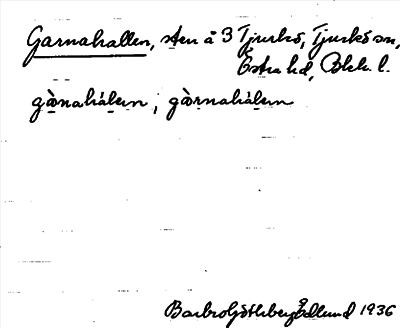 Garnahallen, sten å 3 Tjurkö, Tjurkö sn,
Östra hd, Blek. l.
gànahálen, gàrnahálem
Barbro Götlberg Edlund 1936